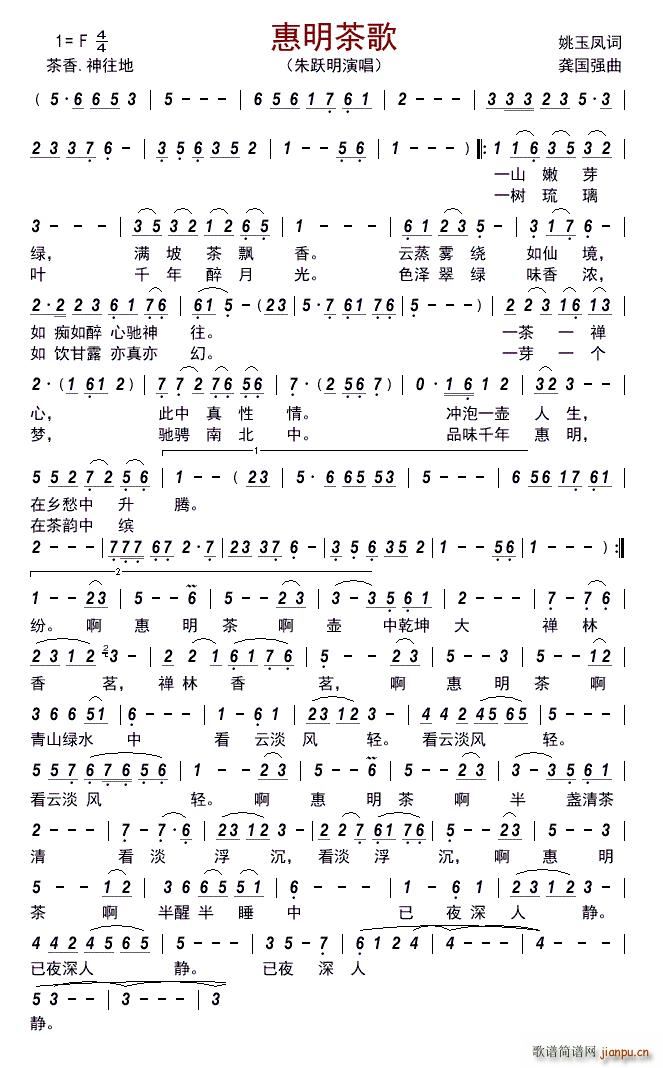 惠明茶歌
1= F 4/4
姚玉凤词
茶香.神往地
（朱跃明演唱）
龚国强曲
( 5· 6 6 5 3 | 5 - - - | 6 5 6 1 7 6 1 | 2 - - - | 3 3 3 3 2 3 5· 3 |
2 3 3 7 6 - | 3 5 6 3 5 2 | 1 - - 5 6 | 1 - - - ) ‖: 1 1 6 3 5 3 2 |
一山 嫩 芽
一树 琉 璃
3 - - - | 3 5 3 2 1 2 6 5 | 1 - - - | 6 1 2 3 5 - | 3 1 7 6 - |
绿， 满 坡 茶 飘 香。 云蒸 雾 绕 如仙 境，
叶 千 年 醉 月 光。 色泽 翠 绿 味香 浓，
2·2 2 3 6 1 7 6 | 6 1 5 - (2 3 | 5· 7 6 1 7 6 | 5 - - - ) | 2 2 3 1 6 1 3 |
如 痴如醉 心驰神 往。 一茶 一 禅
如 饮甘露 亦真亦 幻。 一芽 一 个
2· ( 1 6 1 2 ) | 7 7 2 7 6 5 6 | 7· ( 2 5 6 7 ) | 0· 1 6 1 2 | 3 2 3 - - |
心， 此中 真 性 情。 冲泡一壶 人 生，
梦， 驰骋 南 北 中。 品味千年 惠 明，
1
5 5 2 7 2 5 6 | 1 - - ( 2 3 | 5· 6 6 5 5 3 | 2 - - - | 6 5 6 1 7 6 1 |
在乡愁中 升 腾。
在茶韵中 缤
2 - - - | 7 7 7 6 7 2· 7 | 2 3 3 7 6 - | 3 5 6 3 5 2 | 1 - - 5 6 | 1 - - - ) :‖
2
1 - - 2 3 | 5 - - 6 | 5 - - 2 3 | 3 - 3 5 6 1 | 2 - - - | 7 - 7 6 |
纷。 啊 惠 明 茶 啊 壶 中乾坤 大 禅 林
2 3 1 2 2 3 - | 2 2 1 6 1 7 6 | 5 - - 2 3 | 5 - - 3 | 5 - - 1 2 |
香 茗， 禅 林 香 茗， 啊 惠 明 茶 啊
3 6 6 5 1 | 2 - - - | 1 - 6 1 | 2 3 1 2 3 - | 4 4 2 4 5 6 5 | 5 - - - |
青山绿水 中 看 云淡 风 轻。 看云淡风 轻。
5 5 7 6 7 6 5 6 | 1 - - 2 3 | 5 - - 6 | 5 - - 2 3 | 3 - 3 5 6 1 |
看云淡 风 轻。 啊 惠 明 茶 啊 半 盏清茶
2 - - - | 7 - 7· 6 | 2 3 1 2 3 - | 2 2 7 6 1 7 6 | 5 - - 2 3 | 5 - - 6 |
清 看 淡 浮 沉，看淡 浮 沉， 啊 惠 明
5 - - 1 2 | 3 6 6 5 5 1 | 6 - - - | 2 - - - | 1 - 6 1 | 2 3 1 2 3 - |
茶 啊 半醒 半 睡 中 已 夜 深 人 静。
4 4 2 4 5 6 5 | 5 - - - | 3 5 - 7 | 6 1 2 4 | 4 - - - | 5 - - - |
已夜深人 静。 已夜 深 人
5 3 - - | 3 - - - | 3 - - - ‖
静。
歌谱简谱网
jianpu.cn